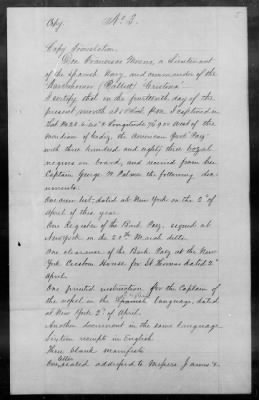 Copy. No 3.
Copy translation
Don Francisco Moreno, a Lieutenant
of the Spanish Navy and commander of the
"Cristina"
I certify that on the fourteenth day of the
present month at o'clock P.M. I captured in
Lat No and Longitude west of the
meridian of Cadiz, the American Bark "Kate"
with three hundred and eighty three bozal
negroes on board, and received from her
Captain George W Palmer the following doc-
uments:
One crew list, dated at New York on the 2d of
April of this year
One Register of the Bark Kate, signed at
New York on the 20th March ditto
One clearance of the Bark Kate at the New
York Custom House for St Thomas dated 2d
April.
One printed instruction for the Captain of
the vessel in the language, dated
at New York 2d of April.
Another document in the same language
Sixteen receipts in English
Three blank manifests
One sealed letter addressed to Messrs James &